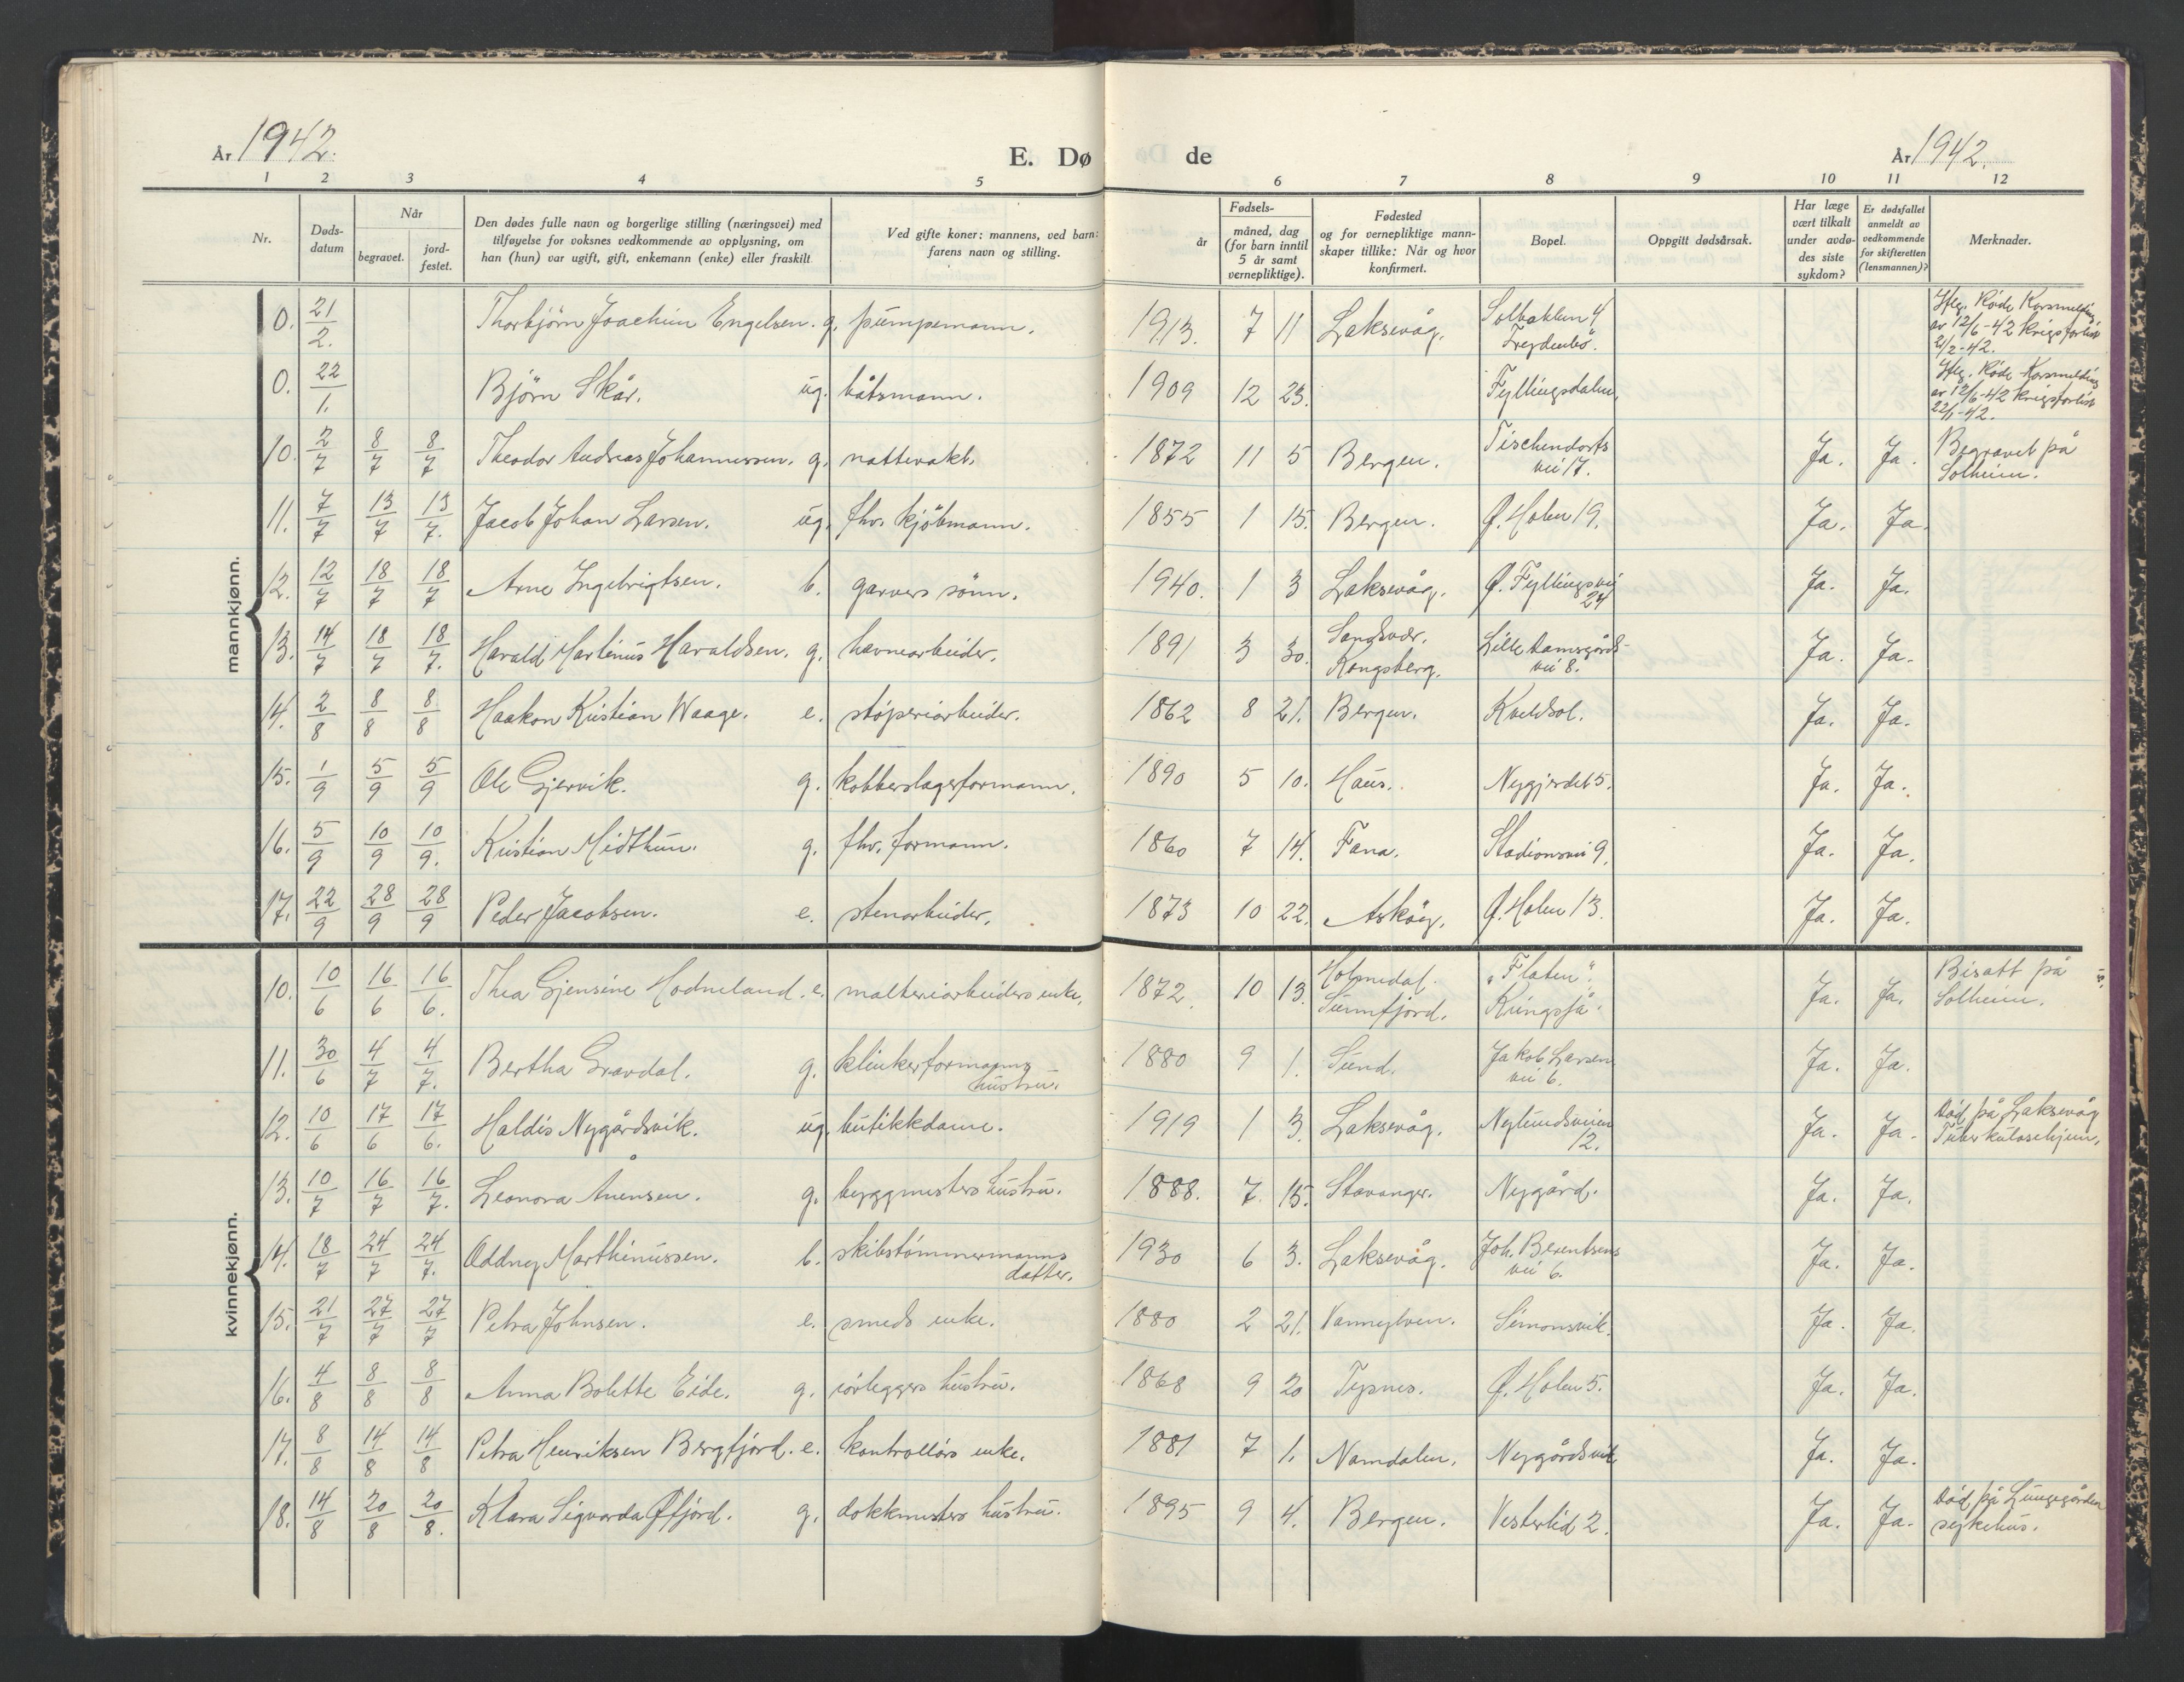 År 1942. E. Døde År 1942.
1 2 3 4 5 6 7 8 9 10 11 12
Nr. Dødsdatum Når begravet. jordfestet. Den dødes fulle navn og borgerlige stilling (næringsvei) med tilføyelse for voksnes vedkommende av opplysning, om han (hun) var ugift, gift, enkemann (enke) eller fraskilt Ved gifte koner: mannens, ved barn: farens navn og stilling. Fødsels- år måned, dag (for barn inntil 5 år samt vernepliktige). Fødested og for vernepliktige mannskaper tillike: Når og hvor konfirmert. Bopel. Oppgitt dødsårsak. Har læge vært tilkalt under avdødes siste sykdom? Er dødsfallet anmeldt av vedkommende for skifteretten (lensmannen)? Merknader.
mannkjønn.
0. 21/2. Thorbjörn Joachim Engelsen. g. pumpemann. 1913. 7 11 Laksevåg. Solbakken 4 Iflg. Röde Korsmelding av 12/6-42 krigsforlist 21/2-42.
0. 22/1. Björn Skår. ug. båtsmann. 1909 12 23. Fyllingsdalen. Iflg. Röde Korsmelding av 12/6-42 krigsforlist 22/1-42.
10. 2/7 8/7 8/7 Theodor Andreas Johannessen. g. nattevakt. 1872 11 5 Bergen. Tischendorfs vei 17. Ja. Ja. Begravet på Solheim.
11. 7/7 13/7 13/7. Jacob Johan Larsen. ug. fhv. kjöbmann. 1855 1 15. Bergen. Ø. Holen 19. Ja. Ja.
12. 12/7 18/7 18/7 Arne Ingebrigtsen. b. garvers sönn. 1940. 1 3 Laksevåg. Ø. Fyllingsvei 24 Ja. Ja.
13. 14/7 18/7 18/7. Harald Martinus Haraldsen. g. havnearbeider. 1891 3 30. Sandsvær. Kongsberg. Lille Damsgårds- vei 8. Ja. Ja.
14. 2/8 8/8 8/8 Haakon Kristian Waage. e. støperiarbeider. 1862 8 21. Bergen. Kveldsol. Ja. Ja.
15. 1/9 5/9 5/9 Ole Gjervik. g. kobberslagerformann. 1890 5 10. Haus. Nygjerdet 5. Ja. Ja.
16. 5/9 10/9 10/9. Kristian Midthun. g. fhv. formann. 1860 7 14. Fana. Stadionsvei 9. Ja. Ja.
17. 22/9 28/9 28/9 Peder Jacobsen. e. stenarbeider. 1873 10 22. Askøy. Ø. Holen 13. Ja. Ja.
kvinnekjønn.
10. 10/6 16/6 16/6. Thea Gjensine Hodneland. e. malteriarbeiders enke. 1872. 10 13. Holmedal. Sunnfjord. "Flaten". Kringsjå. Ja. Ja. Bisatt på Solheim.
11. 30/6 4/7 4/7. Bertha Gravdal. g. klinkerformanns hustru. 1880 9 1. Sund. Jakob Larsens vei 6. Ja. Ja.
12. 10/6 17/6 17/6. Haldis Nygårdsvik. ug. butikkdame. 1919 1 3. Laksevåg. Nylundsveien 12. Ja. Ja. Död på Laksevåg Tuberkulosehjem.
13. 10/7 16/7 16/7. Leonora Ånensen. g. byggmesters hustru. 1888. 7. 15. Stavanger. Nygård. Ja. Ja.
14. 18/7 24/7 24/7. Oddny Marthinussen. b. skibstömmermanns datter. 1930 6 3. Laksevåg. Joh. Berentsens vei 6. Ja. Ja.
15. 21/7 27/7 27/7 Petra Johnsen. e. smeds enke. 1880 2 21. Vannylven. Simonsvik. Ja. Ja.
16. 4/8 8/8 8/8 Anna Bolette Eide. g. rörleggers hustru. 1868 9 20 Tysnes. Ø. Holen 5. Ja. Ja.
17. 8/8 14/8 14/8 Petra Henriksen Bergfjord. e. kontrollörs enke. 1881 7 1. Namdalen. Nygårdsvik Ja. Ja.
18. 14/8 20/8 20/8. Klara Sigvarda Øfjord. g. dokkmesters hustru. 1895 9 4. Bergen. Vesterlid 2. Ja. Ja. Död på Lungegården sykehus.